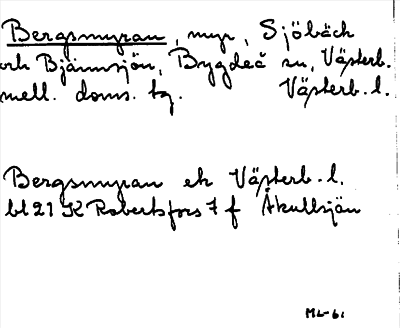 Bergsmyran, myr, Sjöbäck
och Bjännsjön, Bygdeå sn, Västerb.
mell. doms. tg. Västerb. l.
Bergsmyran ek Västerb. l.
bl 21 K Robertsfors 7 f Åkullsjön